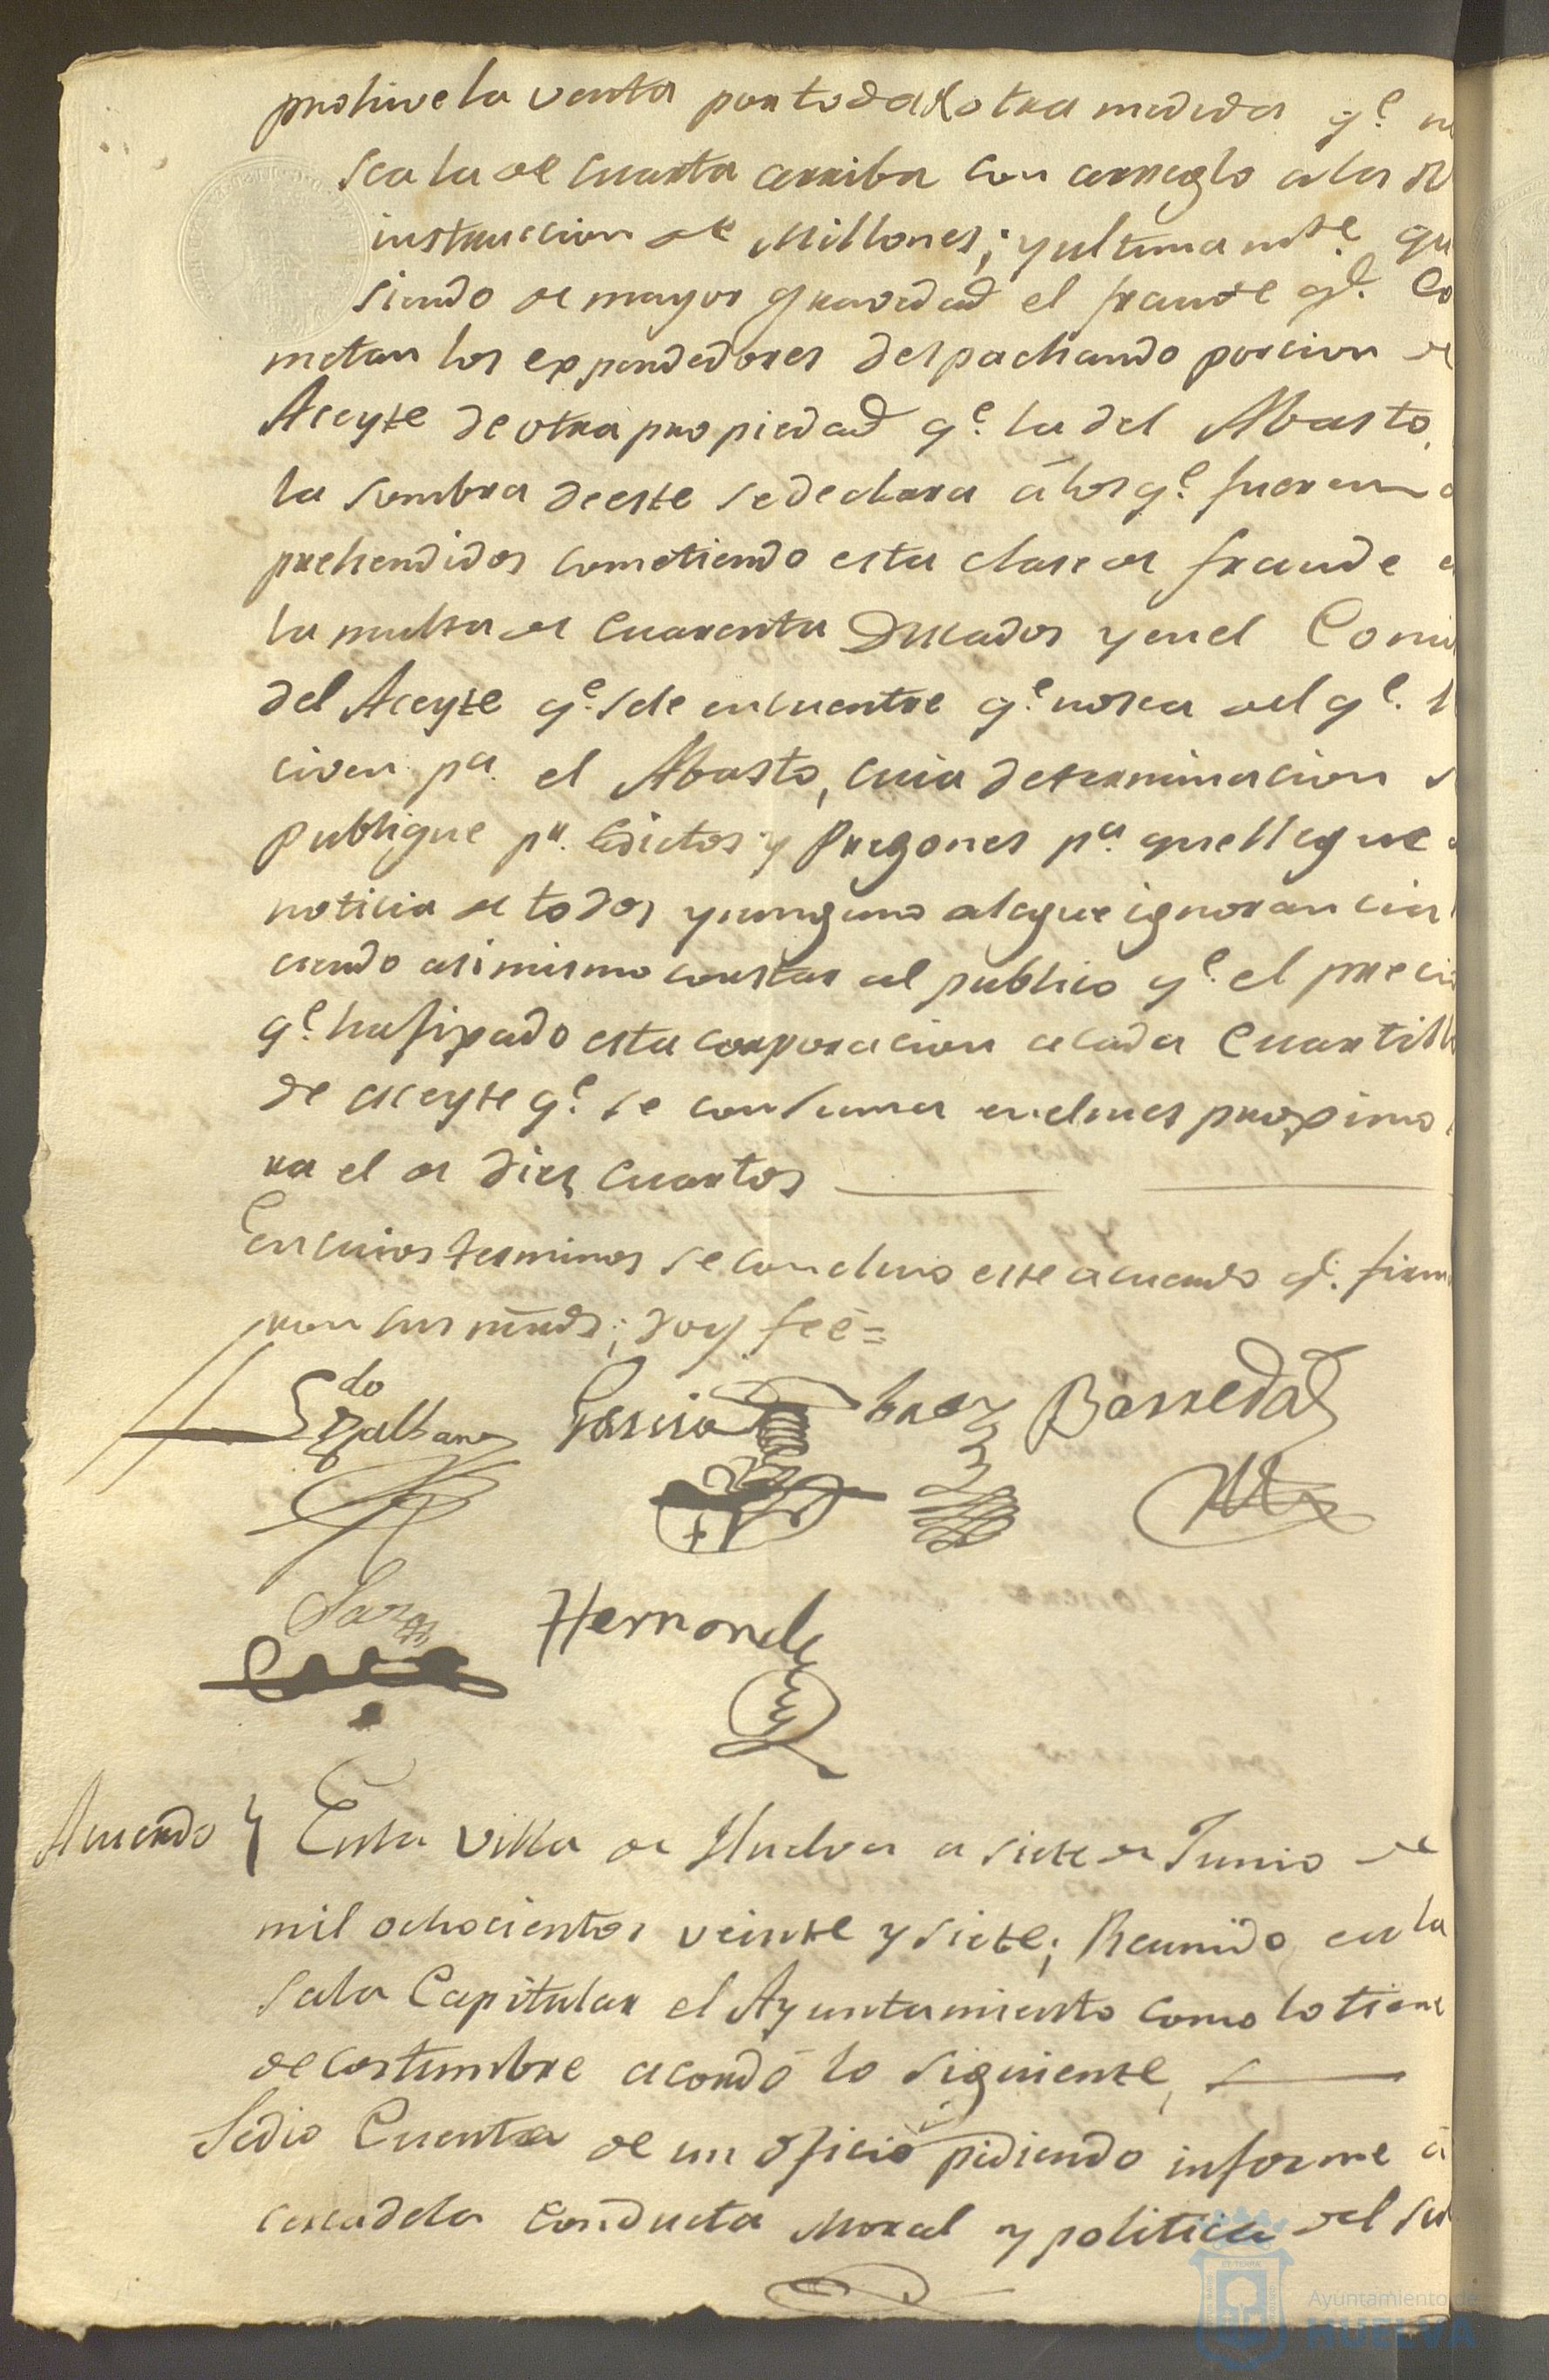 prohive la venta por toda otra medida q.e no
sea la de cuarta arriba con arreglo a la R.l
instruccion de Millones; y ultimam.te que
siendo de mayor gravedad el fraude q.e co
metan los expendedores despachando porcion de
Aceyte de otra propiedad q.e la del Abasto,
la sombra de este se declara á los q.e fueren a
prehendidos cometiendo esta clase de fraude en
la multa de cuarenta Ducados y en el Comi
del Aceyte q.e se le encuentre q.e no sea del q.e re
civen p.a el Abasto, cuia determinacion se
publique p.r Edictos y Pregones p.a que llegue a
noticia de todos y ninguno alegue ignorancia
ciendo asimismo constar al publico q.e el precio
q.e ha fixado esta corporacion a cada Cuartill
de aceyte q.e se consuma en el mes proximo
ra el de diez cuartos
En cuios terminos se concluio este acuerdo q.e firma
ron sus mrds; doy feé=
Garcia Baez Barreda
Hernandz
Acuerdo En la Villa de Huelva a siete de Junio de
mil ochocientos veinte y siete; Reunido en la
Sala Capitular el Ayuntamiento como lo tiene
de costumbre acordó lo siguiente,
Se dio Cuenta de un oficio pidiendo informe á
cerca de la conducta Moral y politica del su
Ayuntamiento de
HUELVA